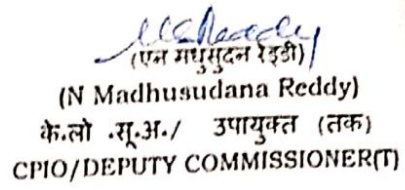 (एन मधुसुदन रेड्डी)
(N Madhusudana Reddy)
के.लो .सू.अ./ उपायुक्त (तक)
CPIO/DEPUTY COMMISSIONER(T)